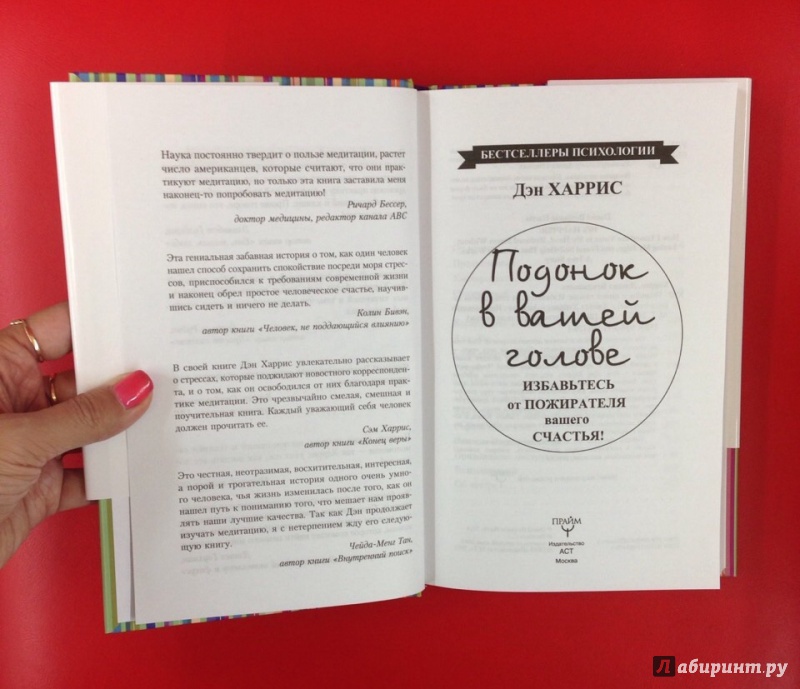 Наука постоянно твердит о пользе медитации, растет
число американцев, которые считают, что они прак-
тикуют медитацию, но только эта книга заставила меня
наконец-то попробовать медитацию!
Ричард Бессер,
доктор медицины, редактор канала ABC
Эта гениальная забавная история о том, как один человек
нашел способ сохранить спокойствие посреди моря стрес-
сов, приспособился к требованиям современной жизни
и наконец обрел простое человеческое счастье, научив-
шись сидеть и ничего не делать.
Колин Бивэн,
автор книги «Человек, не поддающийся влиянию»
В своей книге Дэн Харрис увлекательно рассказывает
о стрессах, которые поджидают новостного корреспонден-
та, и о том, как он освободился от них благодаря практи-
ке медитации. Это чрезвычайно смелая, смешная и
поучительная книга. Каждый уважающий себя человек
должен прочитать ее.
Сэм Харрис,
автор книги «Конец веры»
Это честная, неотразимая, восхитительная, интересная,
а порой и трогательная история одного очень умно-
го человека, чья жизнь изменилась после того, как он
нашел путь к пониманию того, что мешает нам прояв-
лять наши лучшие качества. Так как Дэн продолжает
изучать медитацию, я с нетерпением жду его следую-
щую книгу.
Чейда-Менг Тан,
автор книги «Внутренний поиск»
БЕСТСЕЛЛЕРЫ ПСИХОЛОГИИ
Дэн ХАРРИС
Подонок
в вашей
голове
ИЗБАВЬТЕСЬ
от ПОЖИРАТЕЛЯ
вашего
СЧАСТЬЯ!
ПРАЙМ
Издательство
АСТ
Москва
Лабиринт.ру